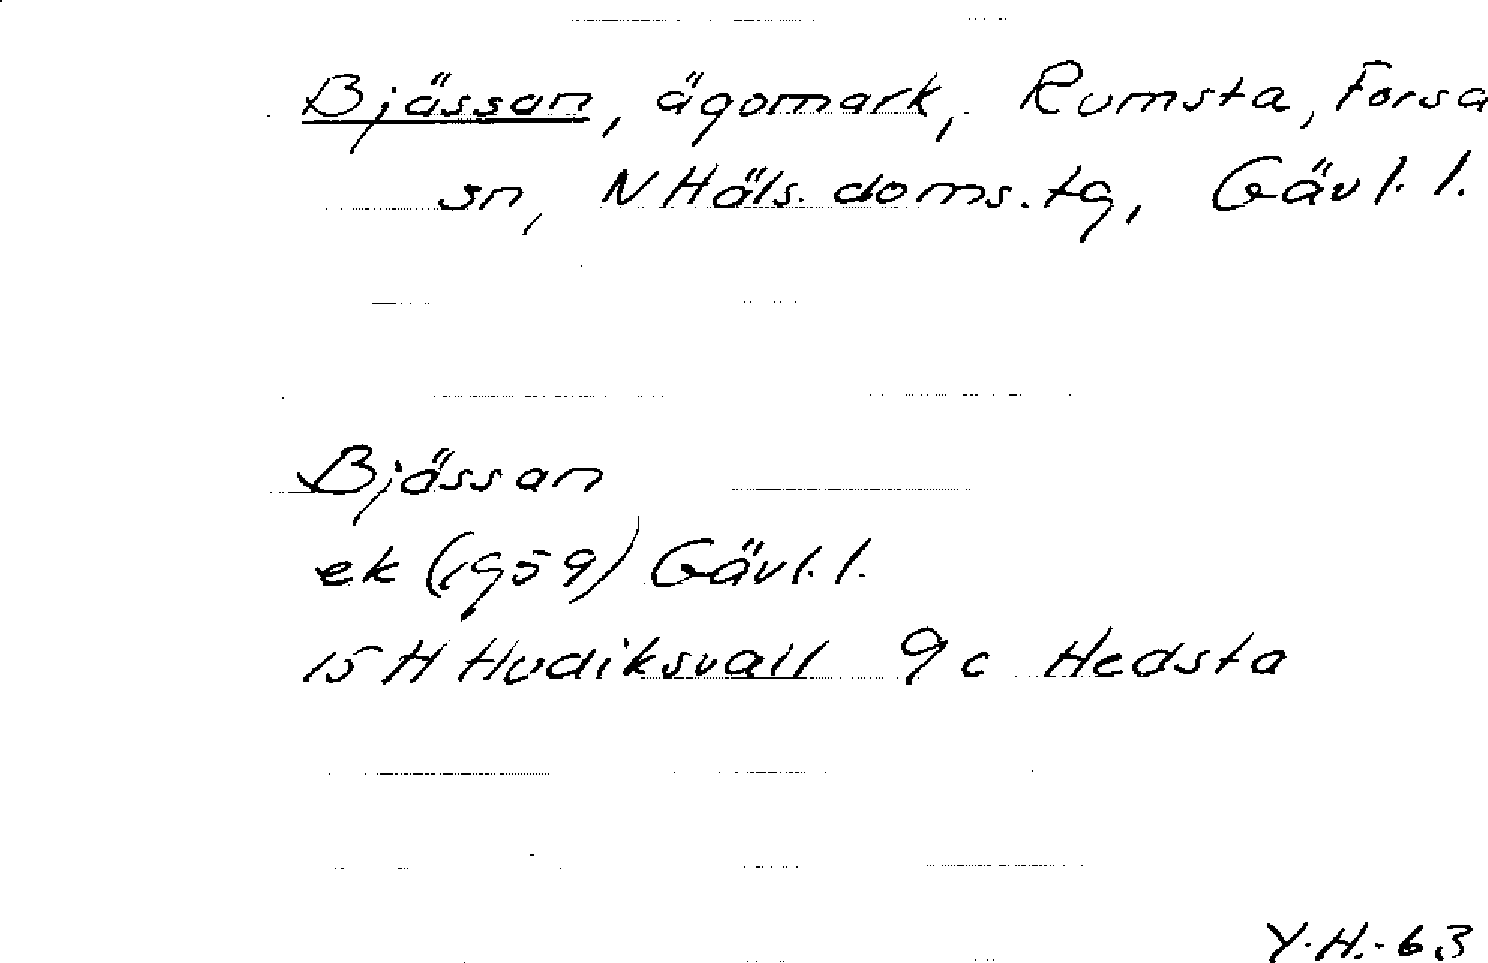 Bjässan, ägomark, Rumsta, Forsa
sn, N Häls. doms. tg, Gävl. l.
Bjässan
ek (1959) Gävl. l.
15 H Hudiksvall 9 c Hedsta
Y.H.-63